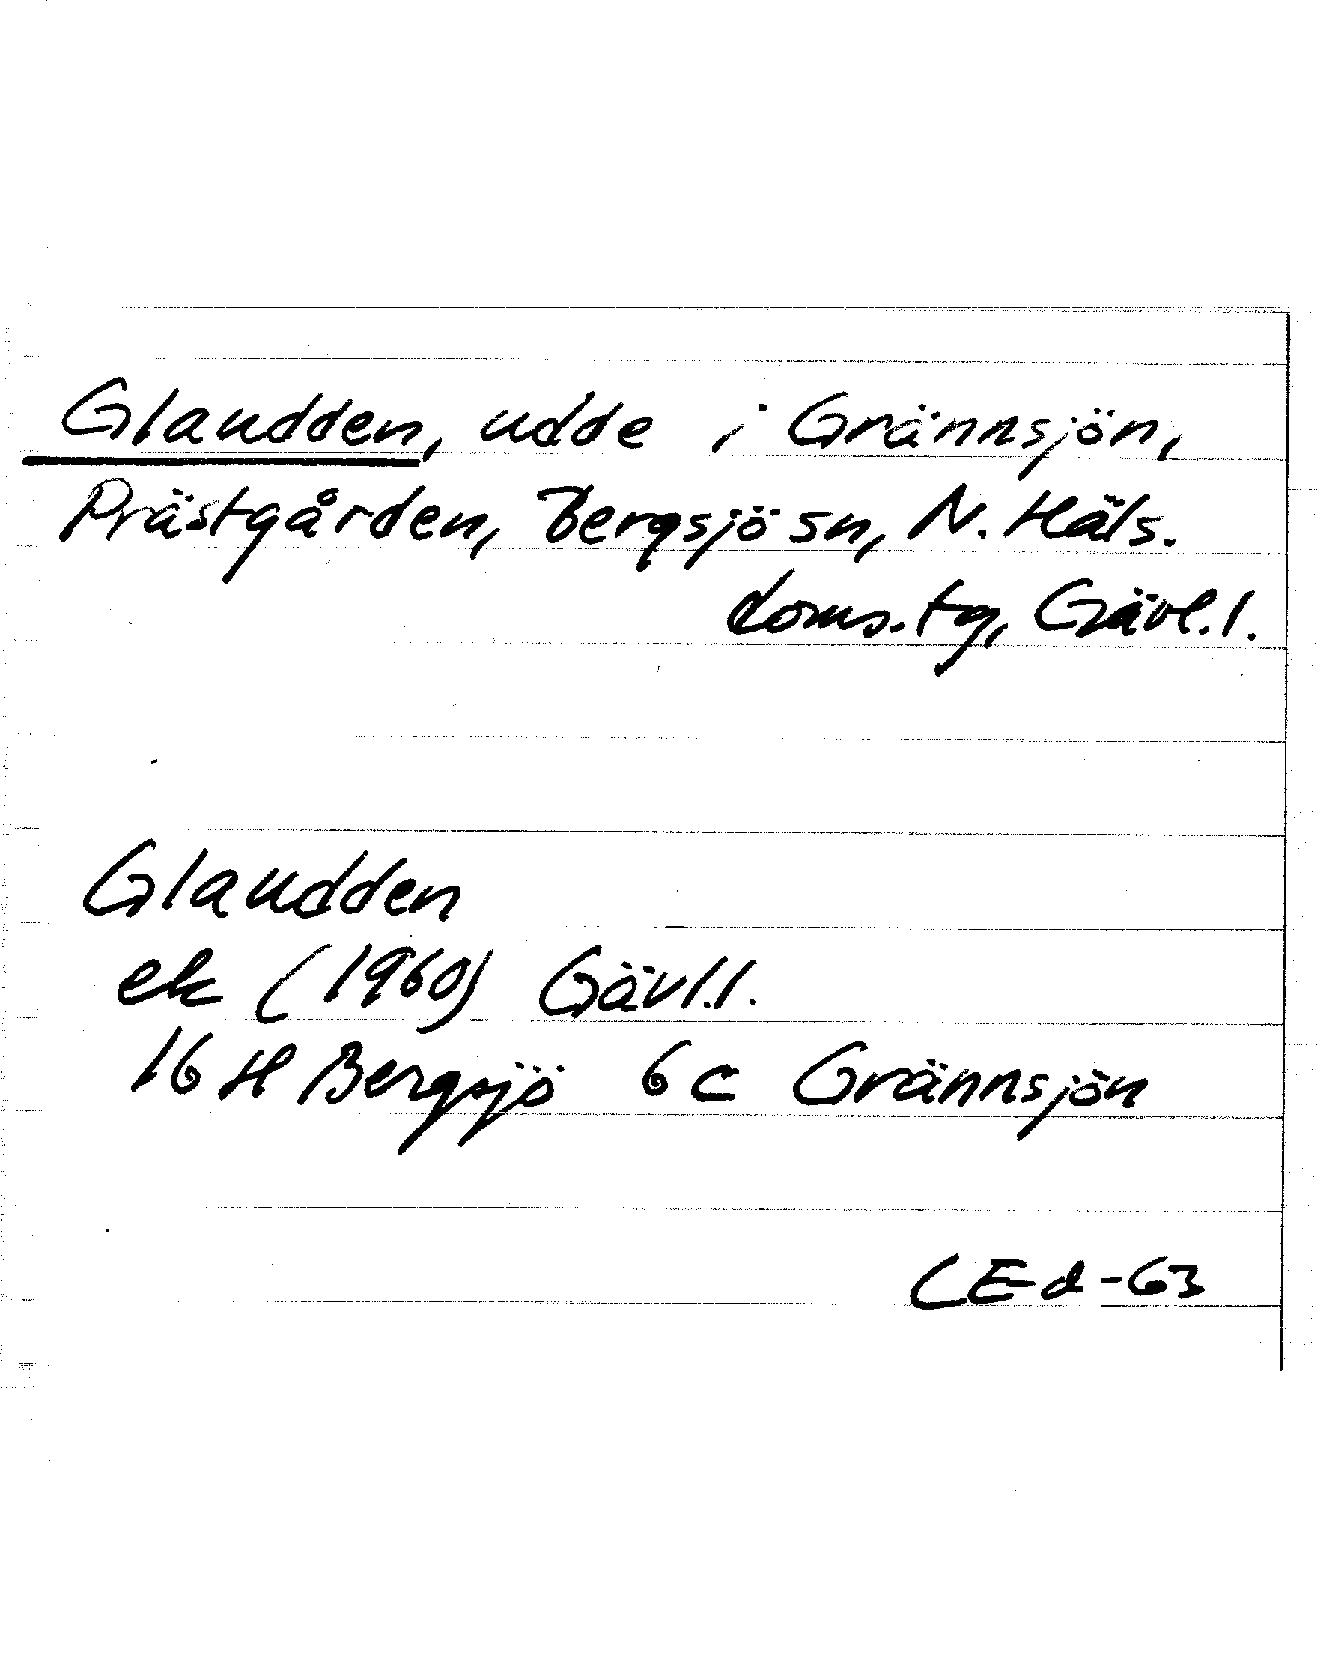 Glaudden, udde i Grännsjön,
Prästgården, Bergsjö sn, N. Häls.
doms.tg, Gävl.l.
Glaudden
ek (1960) Gävl.l.
16 H Bergsjö 6 c Grännsjön
CE-d-63